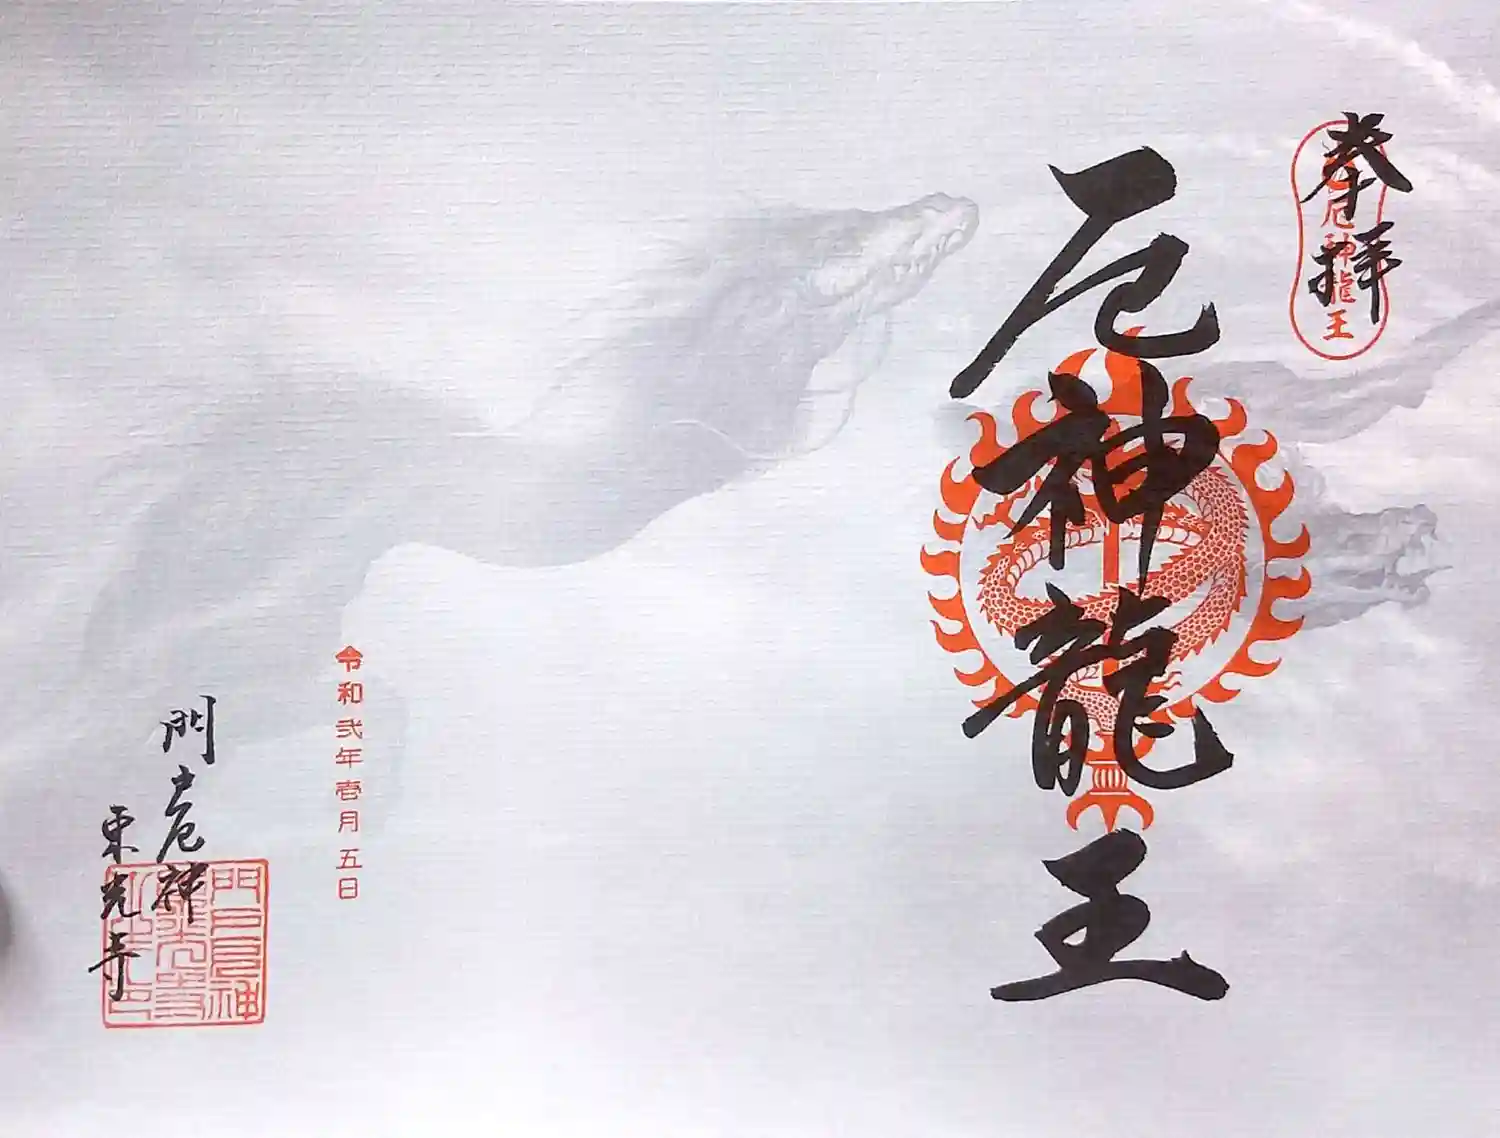 奉拝
厄神龍王
厄神龍王
令和弐年壱月五日
門戸厄神
東光寺
門戸厄神